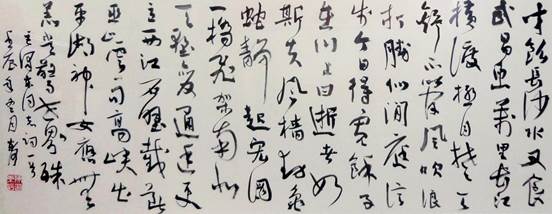 才饮长沙水又食
武昌鱼万里长江
横渡极目楚天
舒不管风吹浪
打胜似闲庭信
步今日得宽馀子
在川上曰逝者如
斯夫风樯动龟
蛇静起宏图
一桥飞架南北
天堑变通途更
立西江石壁截断
巫山云雨高峡出
平湖神女应无
恙当惊世界殊
毛泽东同志词一首
壬辰年月